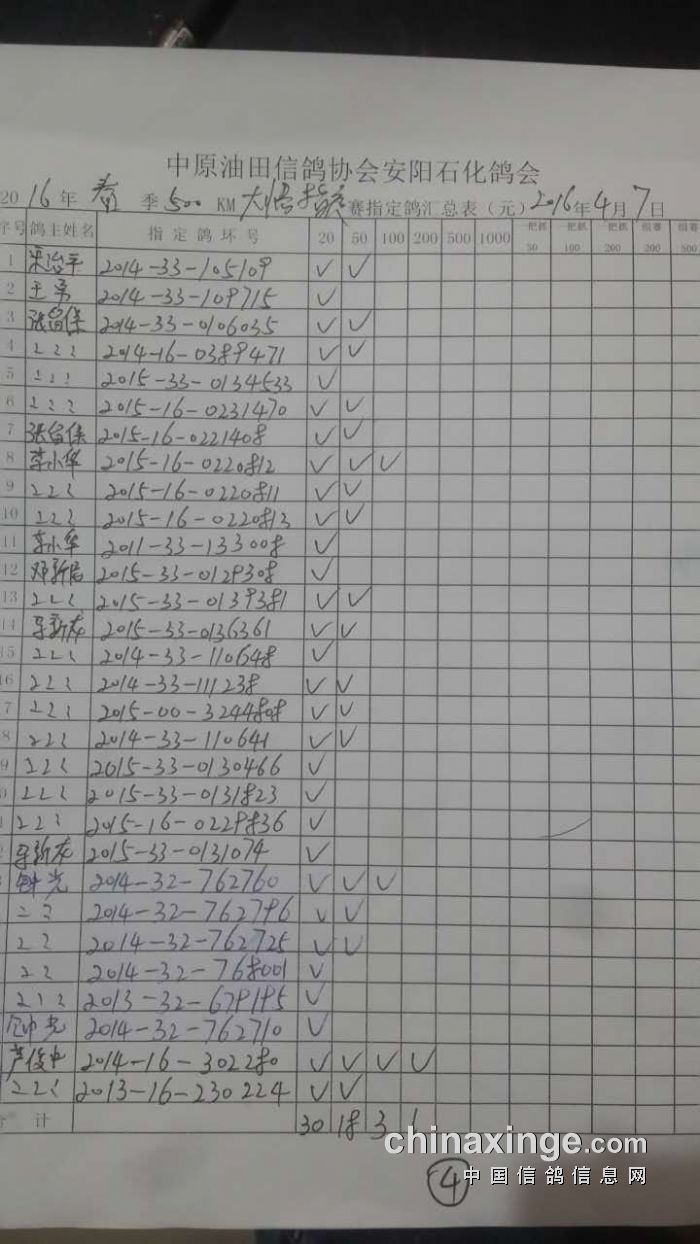 中原油田信鸽协会安阳石化鸽会
2016年 春 季 500 KM 大悟指定 赛指定鸽汇总表（元） 2016年4月7日
序号 鸽主姓名 指定鸽环号 20 50 100 200 500 1000 一把抓 50 一把抓 100 一把抓 200 组赛 200 组赛 500
1 宋治平 2014-33-105109 ✓ ✓
2 王勇 2014-33-109715 ✓
3 张留保 2014-33-0106035 ✓ ✓
4 〃 2014-16-0389471 ✓ ✓
5 〃 2015-33-0134533 ✓
6 〃 2015-16-0231470 ✓ ✓
7 张留保 2015-16-0221408 ✓ ✓
8 李小华 2015-16-0220812 ✓ ✓ ✓
9 〃 2015-16-0220811 ✓ ✓
10 〃 2015-16-0220813 ✓ ✓
11 李小华 2011-33-133008 ✓
12 邓新启 2015-33-0129308 ✓
13 〃 2015-33-0139381 ✓ ✓
14 新友 2015-33-0136361 ✓ ✓
15 〃 2014-33-110648 ✓
16 〃 2014-33-111238 ✓ ✓
7 〃 2015-00-3244808 ✓ ✓
8 〃 2014-33-110641 ✓ ✓
9 〃 2015-33-0130466 ✓
〃 2015-33-0131823 ✓
〃 2015-16-0229836 ✓
新友 2015-33-0131074 ✓
钟光 2014-32-762760 ✓ ✓ ✓
〃 2014-32-762796 ✓ ✓
〃 2014-32-762725 ✓ ✓
〃 2014-32-768001 ✓
〃 2013-32-679195 ✓
钟光 2014-32-762710 ✓
芦俊中 2014-16-302280 ✓ ✓ ✓ ✓
〃 2013-16-230224 ✓ ✓
合计 30 18 3 1
chinaxinge.com
④ 中国信鸽信息网